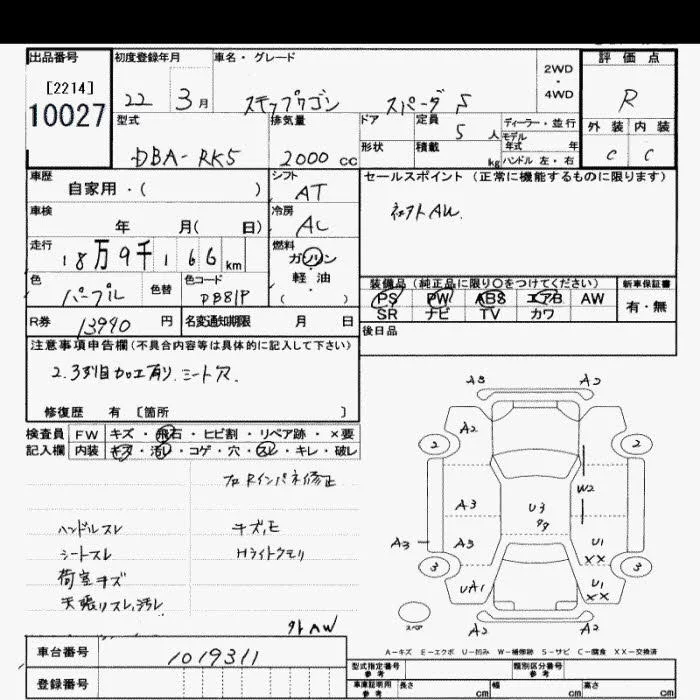 出品番号
[2214]
10027
初度登録年月
22 3月
車名・グレード
ステップワゴン スパーダ S
2WD
・
4WD
評価点
R
外装 内装
C C
型式
DBA-RK5
排気量
2000 cc
ドア
形状
定員
5人
積載
kg
ディーラー・並行
モデル
年式 年
ハンドル 左・右
車歴
自家用・( )
シフト
AT
セールスポイント (正常に機能するものに限ります)
社外AW
車検
年 月( 日)
冷房
AC
走行
18万9千166km
燃料
ガソリン
軽・油
( )
色
パープル
色替
色コード
PB81P
装備品(純正品に限り〇をつけてください)
PS PW ABS エアB AW
SR ナビ TV カワ
新車保証書
有・無
R券 13990円
名変通知期限 月 日
後日品
注意事項申告欄(不具合内容等は具体的に記入して下さい)
2.3列目加工有り.シート穴.
修復歴 有 [箇所 ]
検査員
記入欄
FW キズ・飛石・ヒビ割・リペア跡・×要
内装 キズ・汚レ・コゲ・穴・スレ・キレ・破レ
フロRインパネ修正
ハンドルスレ
シートスレ
荷室キズ
天張リスレ,汚レ
キズ,モ
Hライトクモリ
外AW
A3 A2
A2
2 2
W2
A3 U3
99
A3 A3 U1
XX
3 3
UA1 U1
XX
スペア
A2 A2
A-キズ E-エクボ U-凹み W-補修跡 S-サビ C-腐食 XX-交換済
車台番号
1019311
登録番号
型式指定番号
参考
類別区分番号
参考
車庫証明用
参考
長さ cm
幅 cm
高さ cm